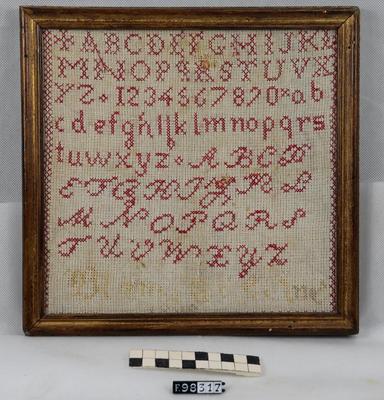 ABCDEFGHIJKL
MNOPQRSTUVX
YZ·1234567890*ab
cdefghijklmnopqrs
tuwxyz·ABCD
EFGHIJKL
MNOPQRS
TUVWXYZ
E98317